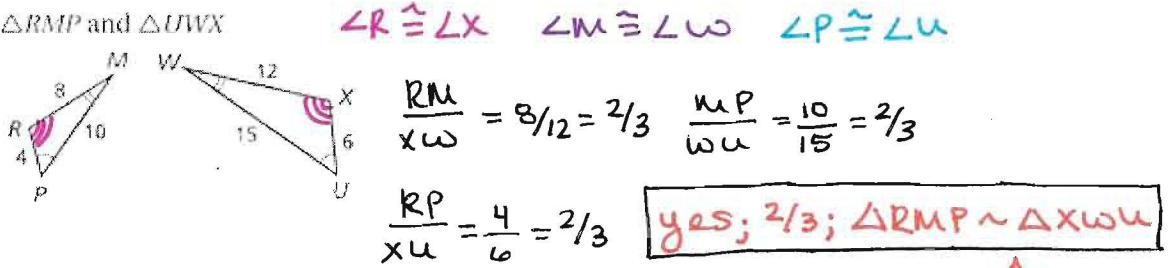 △RMP and △UWX ∠R ≅ ∠X ∠M ≅ ∠W ∠P ≅ ∠U
M W 12
8 X
R 10 15 6
4
P U
RM/XW = 8/12 = 2/3 MP/WU = 10/15 = 2/3
RP/XU = 4/6 = 2/3 yes; 2/3; △RMP ~ △XWU